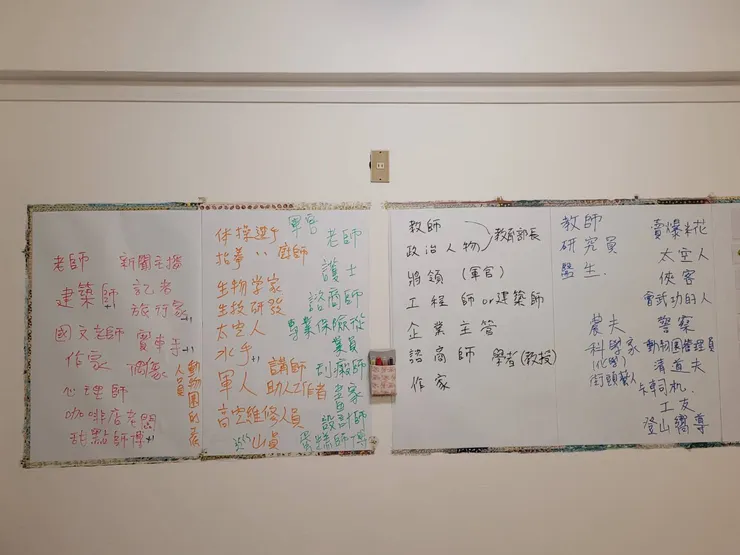 老師
建築師+1
國文老師
作家
心理師
咖啡店老闆
甜點師傅+1
新聞主播
記者
旅行家+1
賽車手+1
偶像
動物園的表
人員
体操選手
指揮、廚師
生物学家
生技研發
太空人
水手+1
軍人
講師
助人工作者
高空維修人員
山員
軍官
老師
護士
諮商師
專業保險從
業員
刺繡師
畫家
設計師
教師
政治人物
教育部長
將領(軍官)
工程師or建築師
企業主管
諮商師 學者(教授)
作家
教師
研究員
醫生.
農夫
科學家
(化學)
街頭藝人
賣爆米花
太空人
俠客
會武功的人
警察
動物園管理員
清道夫
卡車司机.
工友
登山嚮導